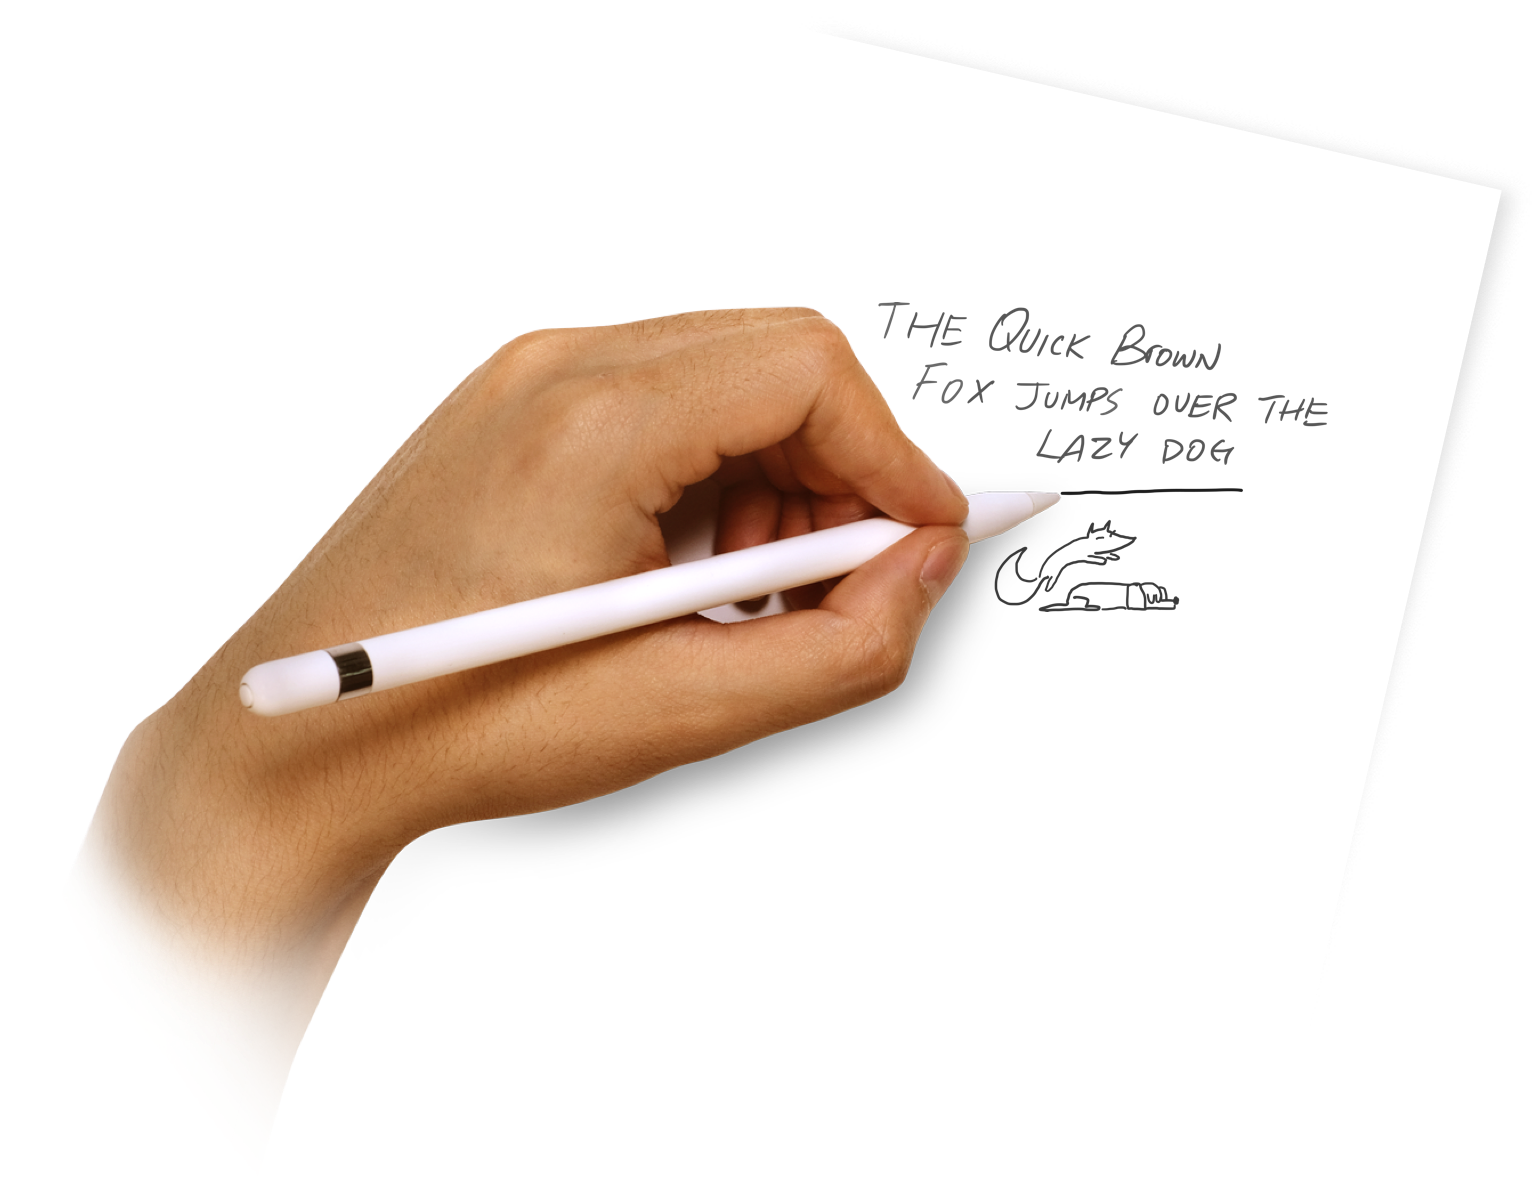 THE QUICK BROWN
FOX JUMPS OVER THE
LAZY DOG